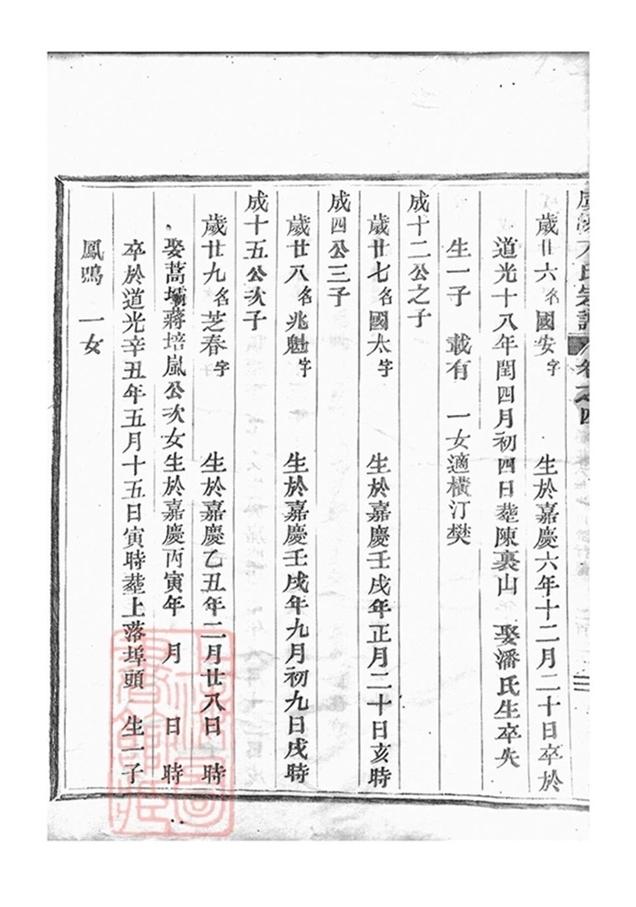 氏宗譜 卷之四
歲廿六 名國安 字 生於嘉慶六年十二月二十日卒於
道光十八年閏四月初四日塟陳裏山 娶潘氏生卒失
生一子 載有 一女適橫汀樊
成十二公之子
歲廿七 名國太 字 生於嘉慶壬戌年正月二十日亥時
成四公三子
歲廿八 名兆魁 字 生於嘉慶壬戌年九月初九日戌時
成十五公次子
歲廿九 名芝春 字 生於嘉慶乙丑年二月廿八日 時
娶蒿壩蔣培嵐公次女生於嘉慶丙寅年 月 日 時
卒於道光辛丑年五月十五日寅時塟上落埠頭 生一子
鳳鳴 一女